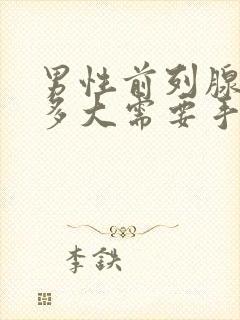 男性前列腺
多大需要手
李鉄